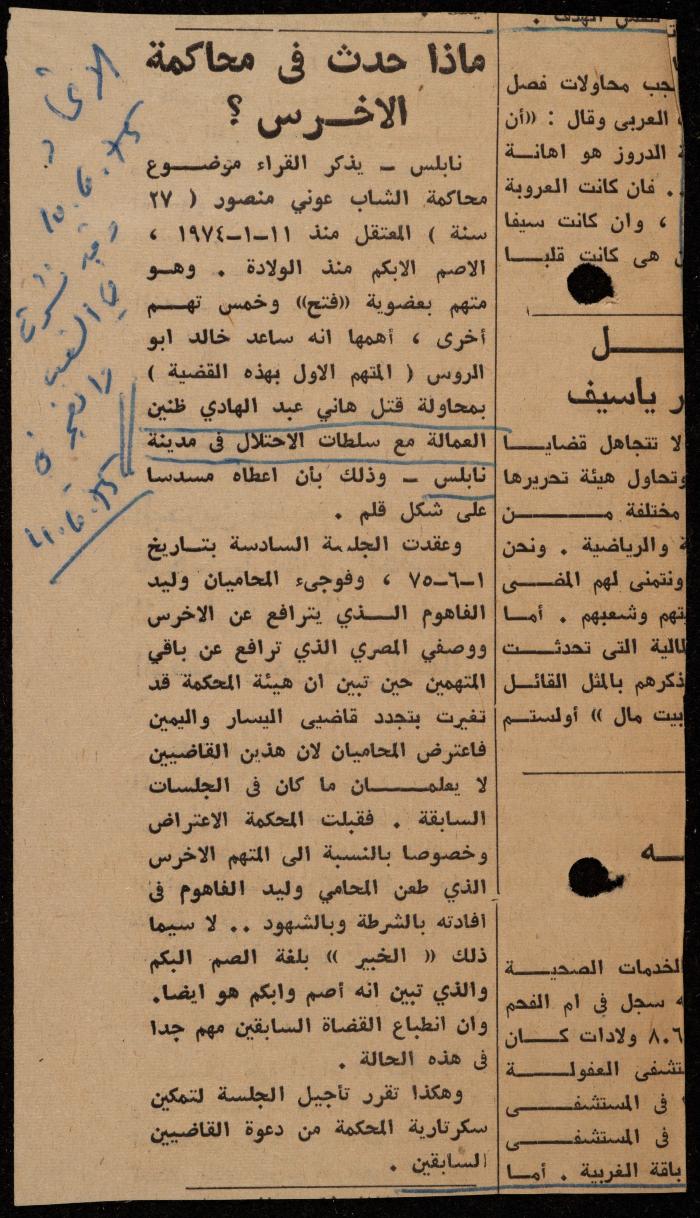 ماذا حدث فى محاكمة
الاخـــرس ؟
نابلس ــ يذكر القراء موضـــوع
محاكمة الشاب عوني منصور ( ٢٧
سنة ) المعتقل منذ ١١ــ١ــ١٩٧٤ ،
الاصم الابكم منذ الولادة . وهــو
متهم بعضوية «فتح» وخمس تهــم
أخرى ، أهمها انه ساعد خالد ابو
الروس ( المتهم الاول بهذه القضية )
بمحاولة قتل هاني عبد الهادي ظنين
العمالة مع سلطات الاحتلال فى مدينة
نابلس ــ وذلك بأن اعطاه مسدسا
على شكل قلم .
وعقدت الجلسة السادسة بتــاريخ
١ــ٦ــ٧٥ ، وفوجىء المحاميان وليد
الفاهوم الـــذي يترافع عن الاخرس
ووصفي المصري الذي ترافع عن باقي
المتهمين حين تبين ان هيئة المحكمة قد
تغيرت بتجدد قاضيى اليسار واليمين
فاعترض المحاميان لان هذين القاضيين
لا يعلمـــــان ما كان فى الجلسات
السابقة . فقبلت المحكمة الاعتراض
وخصوصا بالنسبة الى المتهم الاخرس
الذي طعن المحامي وليد الفاهوم فى
أفادته بالشرطة وبالشهود .. لا سيما
ذلك « الخبير » بلغة الصم البكم
والذي تبين انه أصم وابكم هو ايضا.
وان انطباع القضاة السابقين مهم جدا
فى هذه الحالة .
وهكذا تقرر تأجيل الجلسة لتمكين
سكرتارية المحكمة من دعوة القاضيين
السابقين .
الاتحاد
١٥.٦.٧٥
وقد نشرت
في الشعب
والفجر في
١١.٦.٧٥
جب محاولات فصل
العربى وقال : «أن
الدروز هو اهانــة
. فان كانت العروبة
، وان كانت سيفا
هى كانت قلبــا
ــل
ر ياسيف
لا تتجاهل قضايــا
وتحاول هيئة تحريرها
مختلفة مــــــن
ة والرياضية . ونحن
ونتمنى لهم المضــى
يتهم وشعبهم . أمــا
التى تحدثــت
ذكرهم بالمثل القائــل
بيت مال » أولستــم
ــه
الخدمات الصحيــة
ه سجل في ام الفحم
٨.٦ ولادات كــان
ستشفى العفولــــة
فى المستشفـــى
فى المستشفـــى
باقة الغربية . أمــا